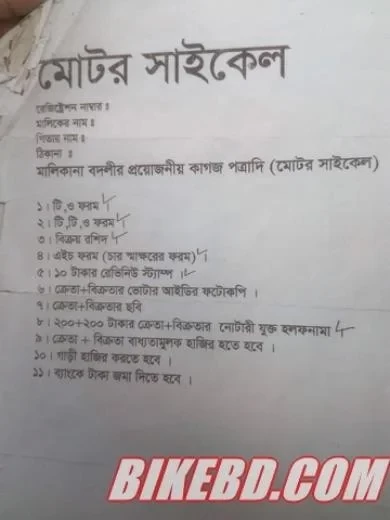 মোটর সাইকেল
রেজিষ্ট্রেশন নাম্বার ঃ
মালিকের নাম ঃ
পিতার নাম ঃ
ঠিকানা ঃ
মালিকানা বদলীর প্রয়োজনীয় কাগজ পত্রাদি (মোটর সাইকেল)
১। টি,ও ফরম
২। টি,টি,ও ফরম
৩। বিক্রয় রশিদ
৪। এইচ ফরম (চার স্বাক্ষরের ফরম)
৫। ১০ টাকার রেভিনিউ স্ট্যাম্প ।
৬। ক্রেতা+বিক্রতার ভোটার আইডির ফটোকপি ।
৭। ক্রেতা+বিক্রতার ছবি
৮। ২০০+২০০ টাকার ক্রেতা+বিক্রতার নোটারী যুক্ত হলফনামা
৯। ক্রেতা + বিক্রতা বাধ্যতামুলক হাজির হতে হবে ।
১০। গাড়ী হাজির করতে হবে ।
১১। ব্যাংকে টাকা জমা দিতে হবে ।
BIKEBD.COM